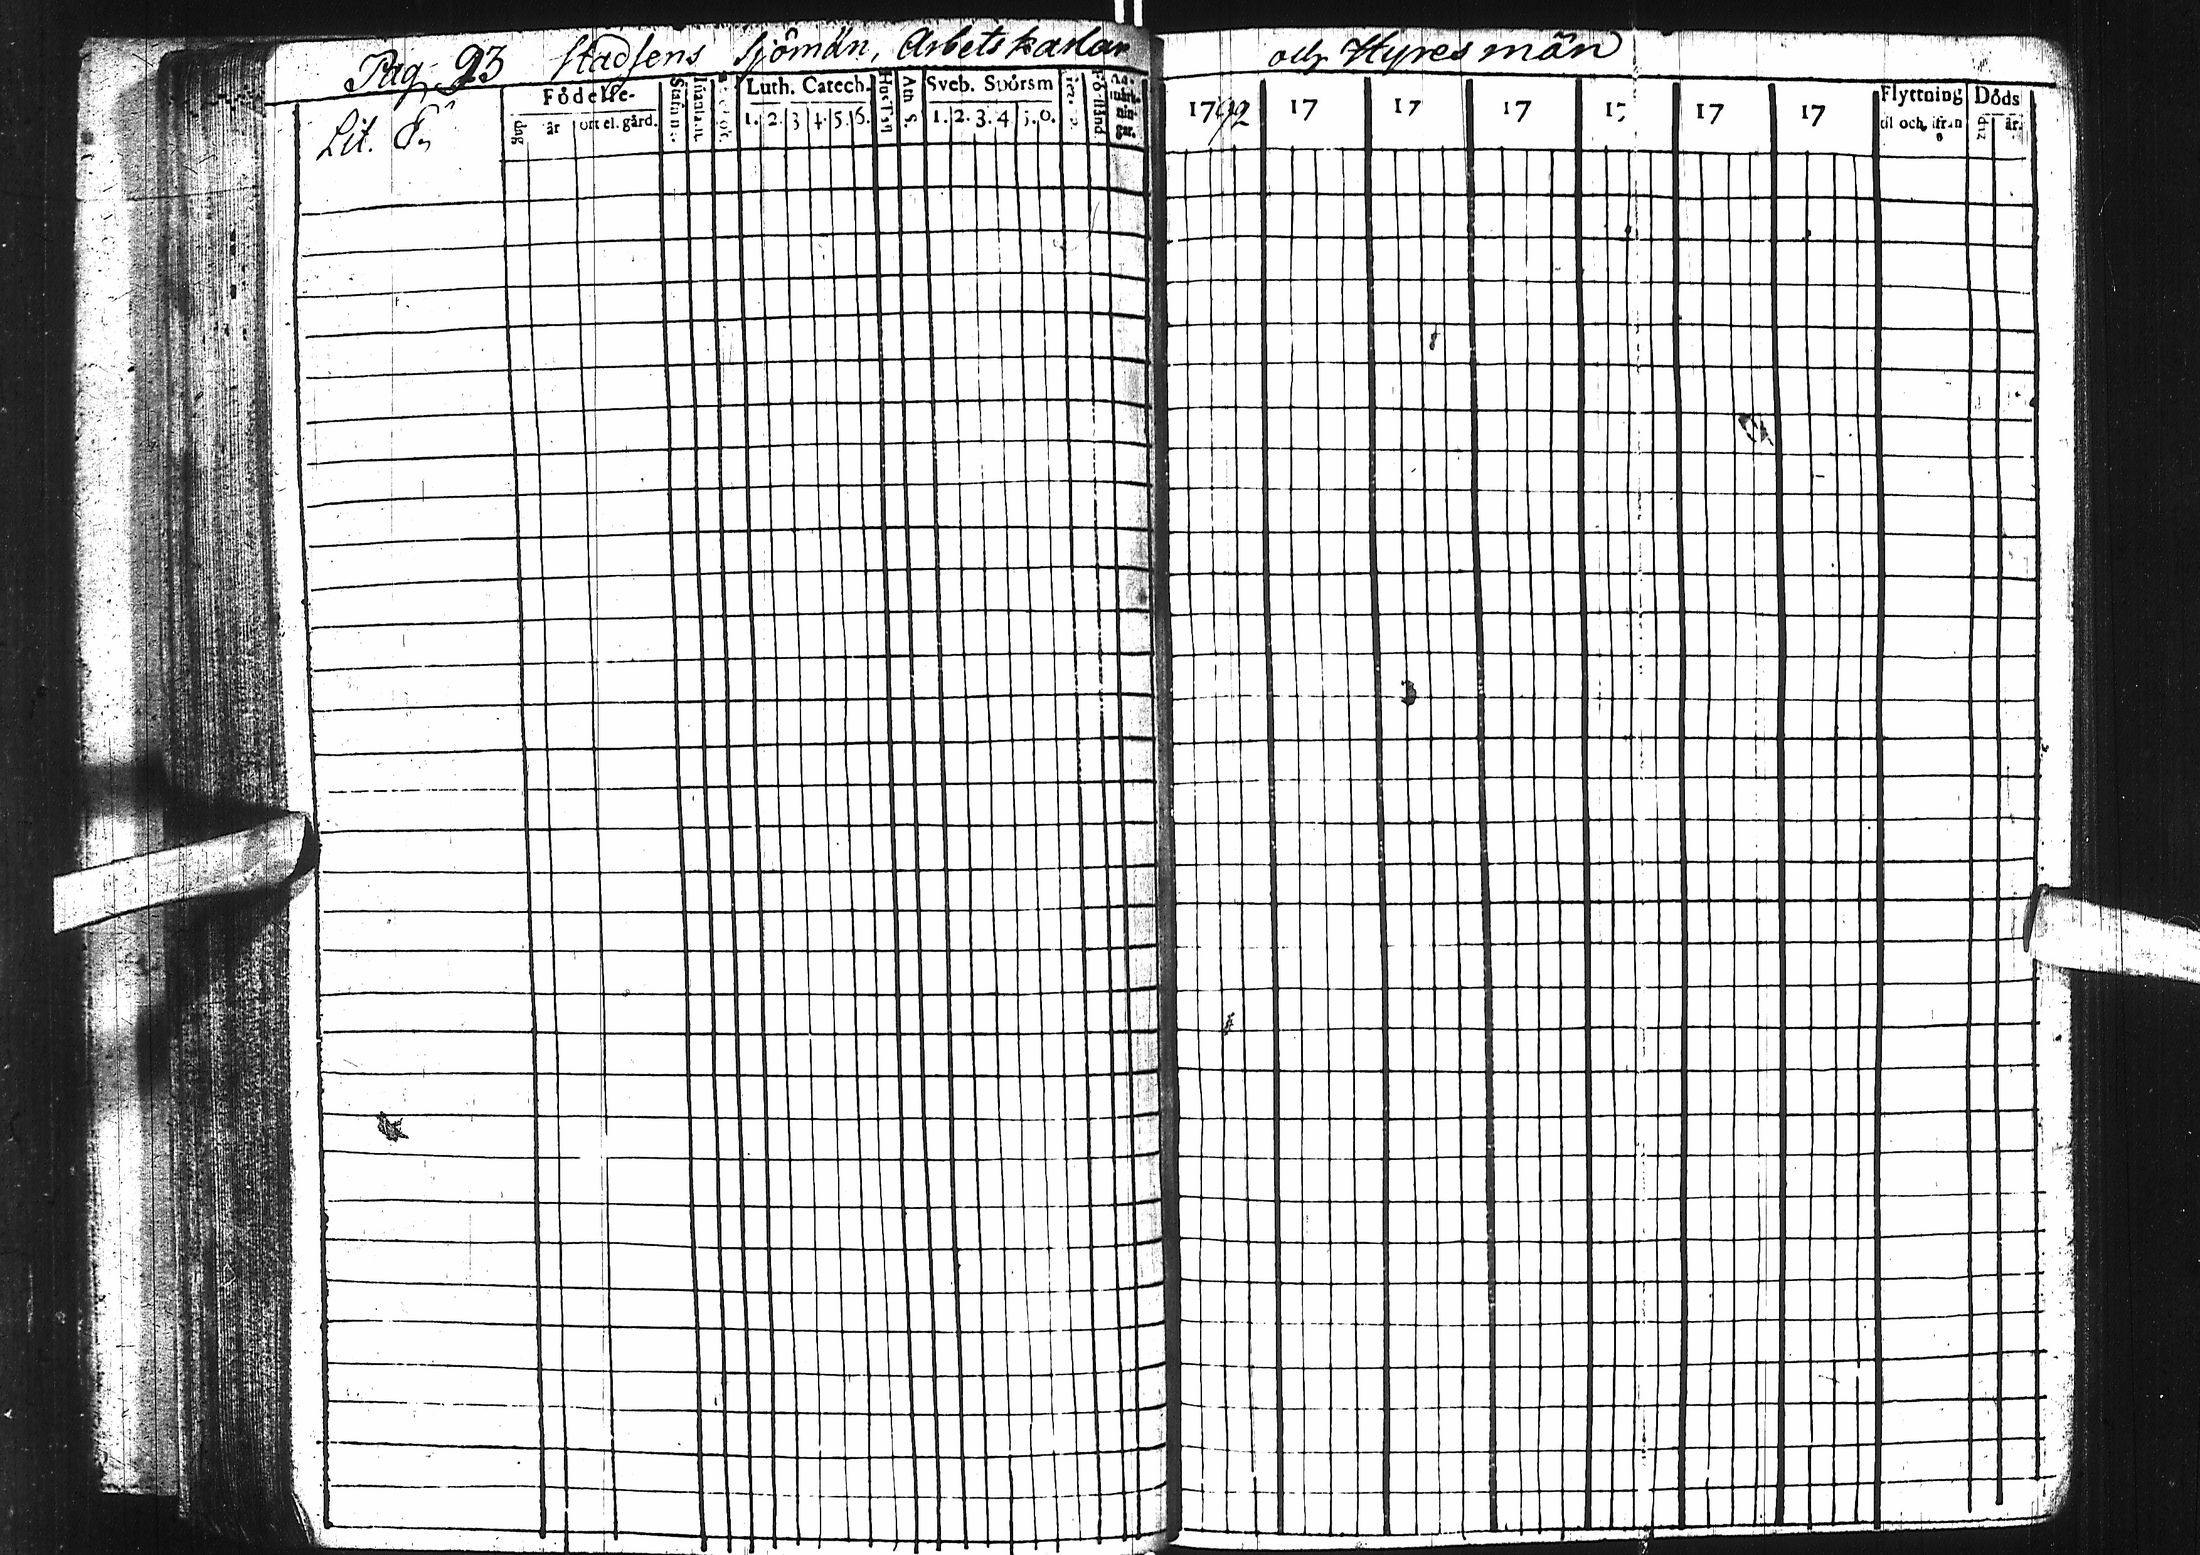 Pag. 93 Stadsens Sjömän, Arbetskarlar och Hyresmän
Lit. F.
Födelse-
dag år ort el. gård.
Luth. Catech.
1. 2. 3 4. 5. 6.
Ath. S.
Sveb. Spörsm
1. 2. 3. 4 5. 6.
1792 17 17 17 17 17 17
Flyttning
til och ifrån
Döds
dag år.